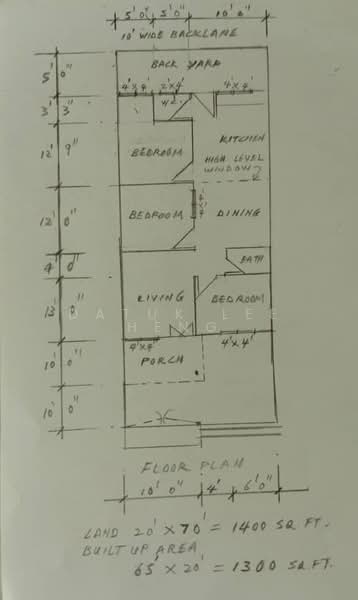 5' 0" 5' 0" 10' 0"
10' WIDE BACKLANE
BACK YARD
5' 0"
4'x4' 2'x4' 4'x4'
W/C
3' 3"
KITCHEN
BEDROOM
12' 9"
HIGH LEVEL
WINDOW
BEDROOM
4'x4'
DINING
12' 0"
BATH
4' 0"
LIVING
BEDROOM
13' 0"
DATUK LEE
HENG
4'x4'
4'x4'
PORCH
10' 0"
10' 0"
FLOOR PLAN
10' 0" 4' 6' 0"
LAND 20' x 70' = 1400 SQ FT.
BUILT UP AREA
65' x 20' = 1300 SQ.FT.